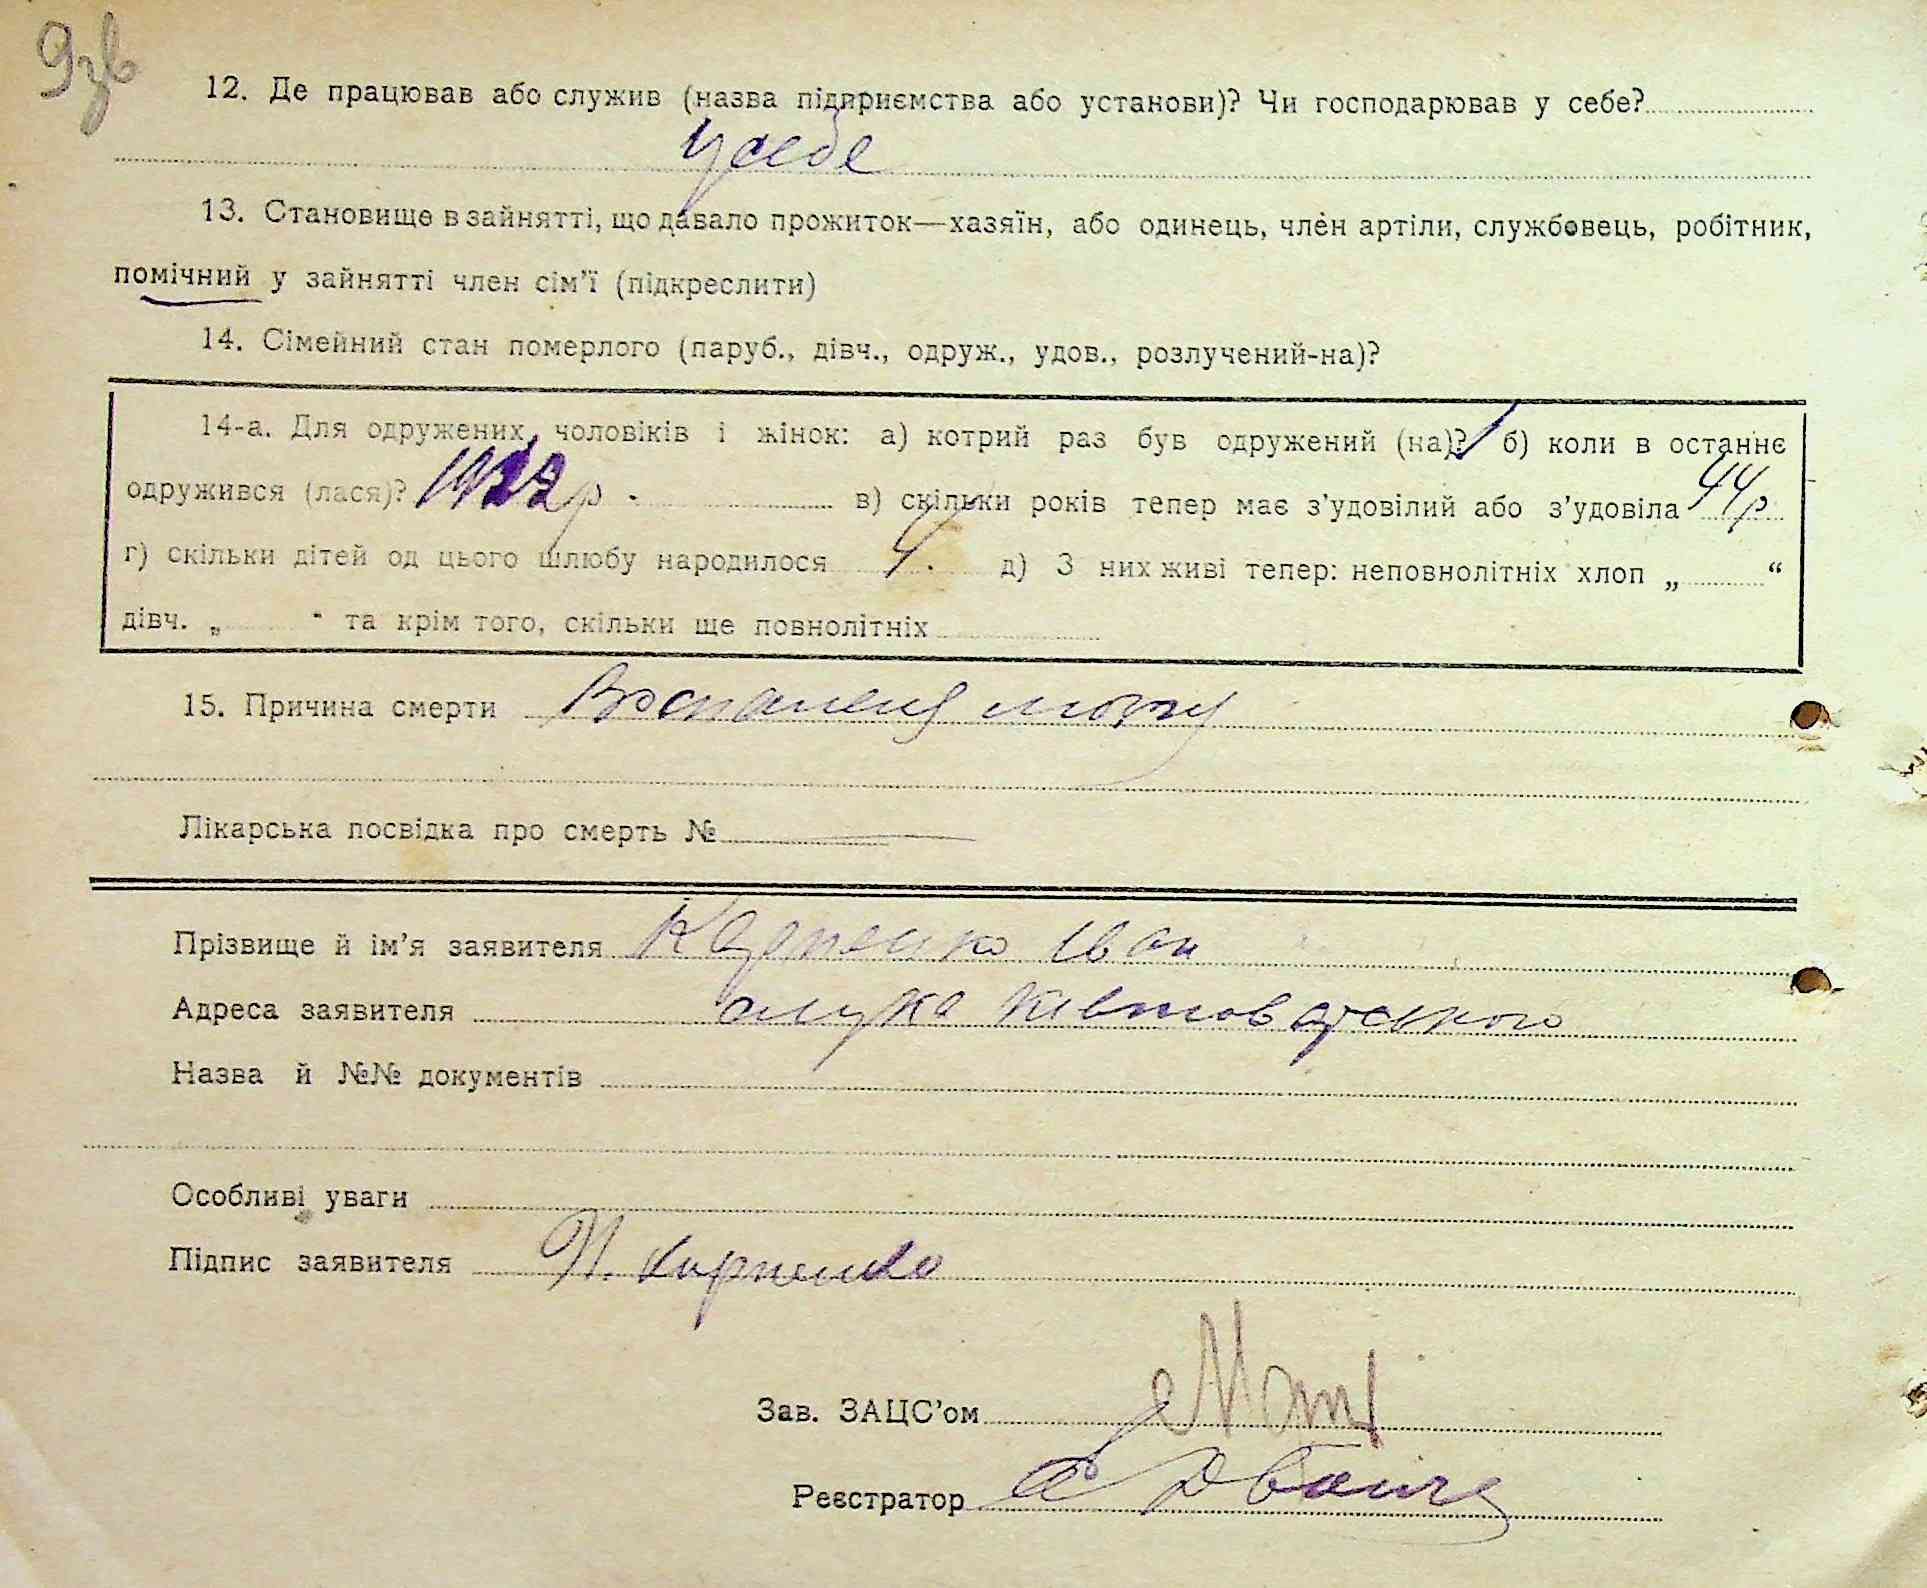 9зв
12. Де працював або служив (назва підприємства або установи)? Чи господарював у себе?
у себе
13. Становище в зайнятті, що давало прожиток—хазяїн, або одинець, член артіли, службовець, робітник,
помічний у зайнятті член сім'ї (підкреслити)
14. Сімейний стан померлого (паруб., дівч., одруж., удов., розлучений-на)?
14-а. Для одружених чоловіків і жінок: а) котрий раз був одружений (на)? б) коли в останнє
одружився (лася)? 1922 р. в) скільки років тепер має з'удовілий або з'удовіла 44 р
г) скільки дітей од цього шлюбу народилося 4. д) З них живі тепер: неповнолітніх хлоп „ “
дівч. „ “ та крім того, скільки ще повнолітніх
15. Причина смерти Воспаленя мозгу
Лікарська посвідка про смерть № —
Прізвище й ім'я заявителя Карпенко Іван
Адреса заявителя
Назва й №№ документів
Особливі уваги
Підпис заявителя Карпенко
Зав. ЗАЦС'ом
Реєстратор